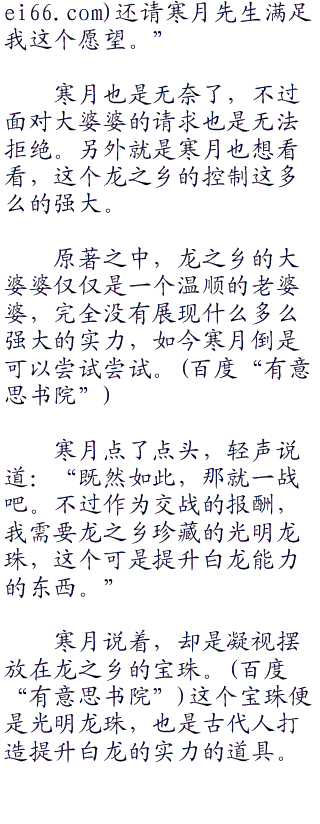 ei66.com)还请寒月先生满足
我这个愿望。”
寒月也是无奈了，不过
面对大婆婆的请求也是无法
拒绝。另外就是寒月也想看
看，这个龙之乡的控制这多
么的强大。
原著之中，龙之乡的大
婆婆仅仅是一个温顺的老婆
婆，完全没有展现什么多么
强大的实力，如今寒月倒是
可以尝试尝试。(百度“有意
思书院”)
寒月点了点头，轻声说
道：“既然如此，那就一战
吧。不过作为交战的报酬，
我需要龙之乡珍藏的光明龙
珠，这个可是提升白龙能力
的东西。”
寒月说着，却是凝视摆
放在龙之乡的宝珠。(百度
“有意思书院”)这个宝珠便
是光明龙珠，也是古代人打
造提升白龙的实力的道具。